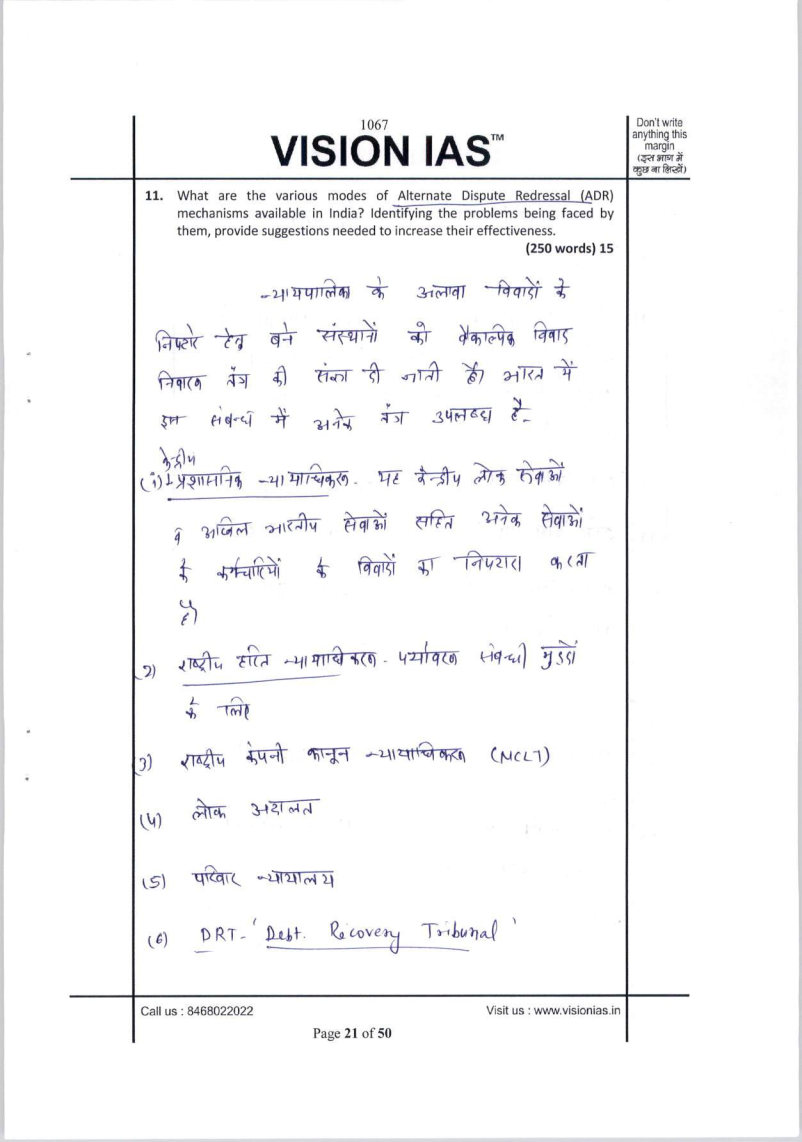 1067
VISION IAS™
Don't write
anything this
margin
(इस भाग में
कुछ ना लिखें)
11. What are the various modes of Alternate Dispute Redressal (ADR)
mechanisms available in India? Identifying the problems being faced by
them, provide suggestions needed to increase their effectiveness.
(250 words) 15
न्यायपालिका के अलावा विवादों के
निपटारे हेतु बने संस्थानों को वैकल्पिक विवाद
निवारण तंत्र की संज्ञा दी जाती है। भारत में
इस संबन्ध में अनेक तंत्र उपलब्ध है -
केन्द्रीय
(1) प्रशासनिक न्यायाधिकरण - यह केन्द्रीय लोक सेवाओं
व अखिल भारतीय सेवाओं सहित अनेक सेवाओं
के कर्मचारियों के विवादों का निपटारा करता
है।
2) राष्ट्रीय हरित न्यायाधिकरण - पर्यावरण संबन्धी मुद्दों
के लिए
(3) राष्ट्रीय कंपनी कानून न्यायाधिकरण (NCLT)
(4) लोक अदालत
(5) परिवार न्यायालय
(6) DRT - 'Debt. Recovery Tribunal'
Call us : 8468022022
Visit us : www.visionias.in
Page 21 of 50